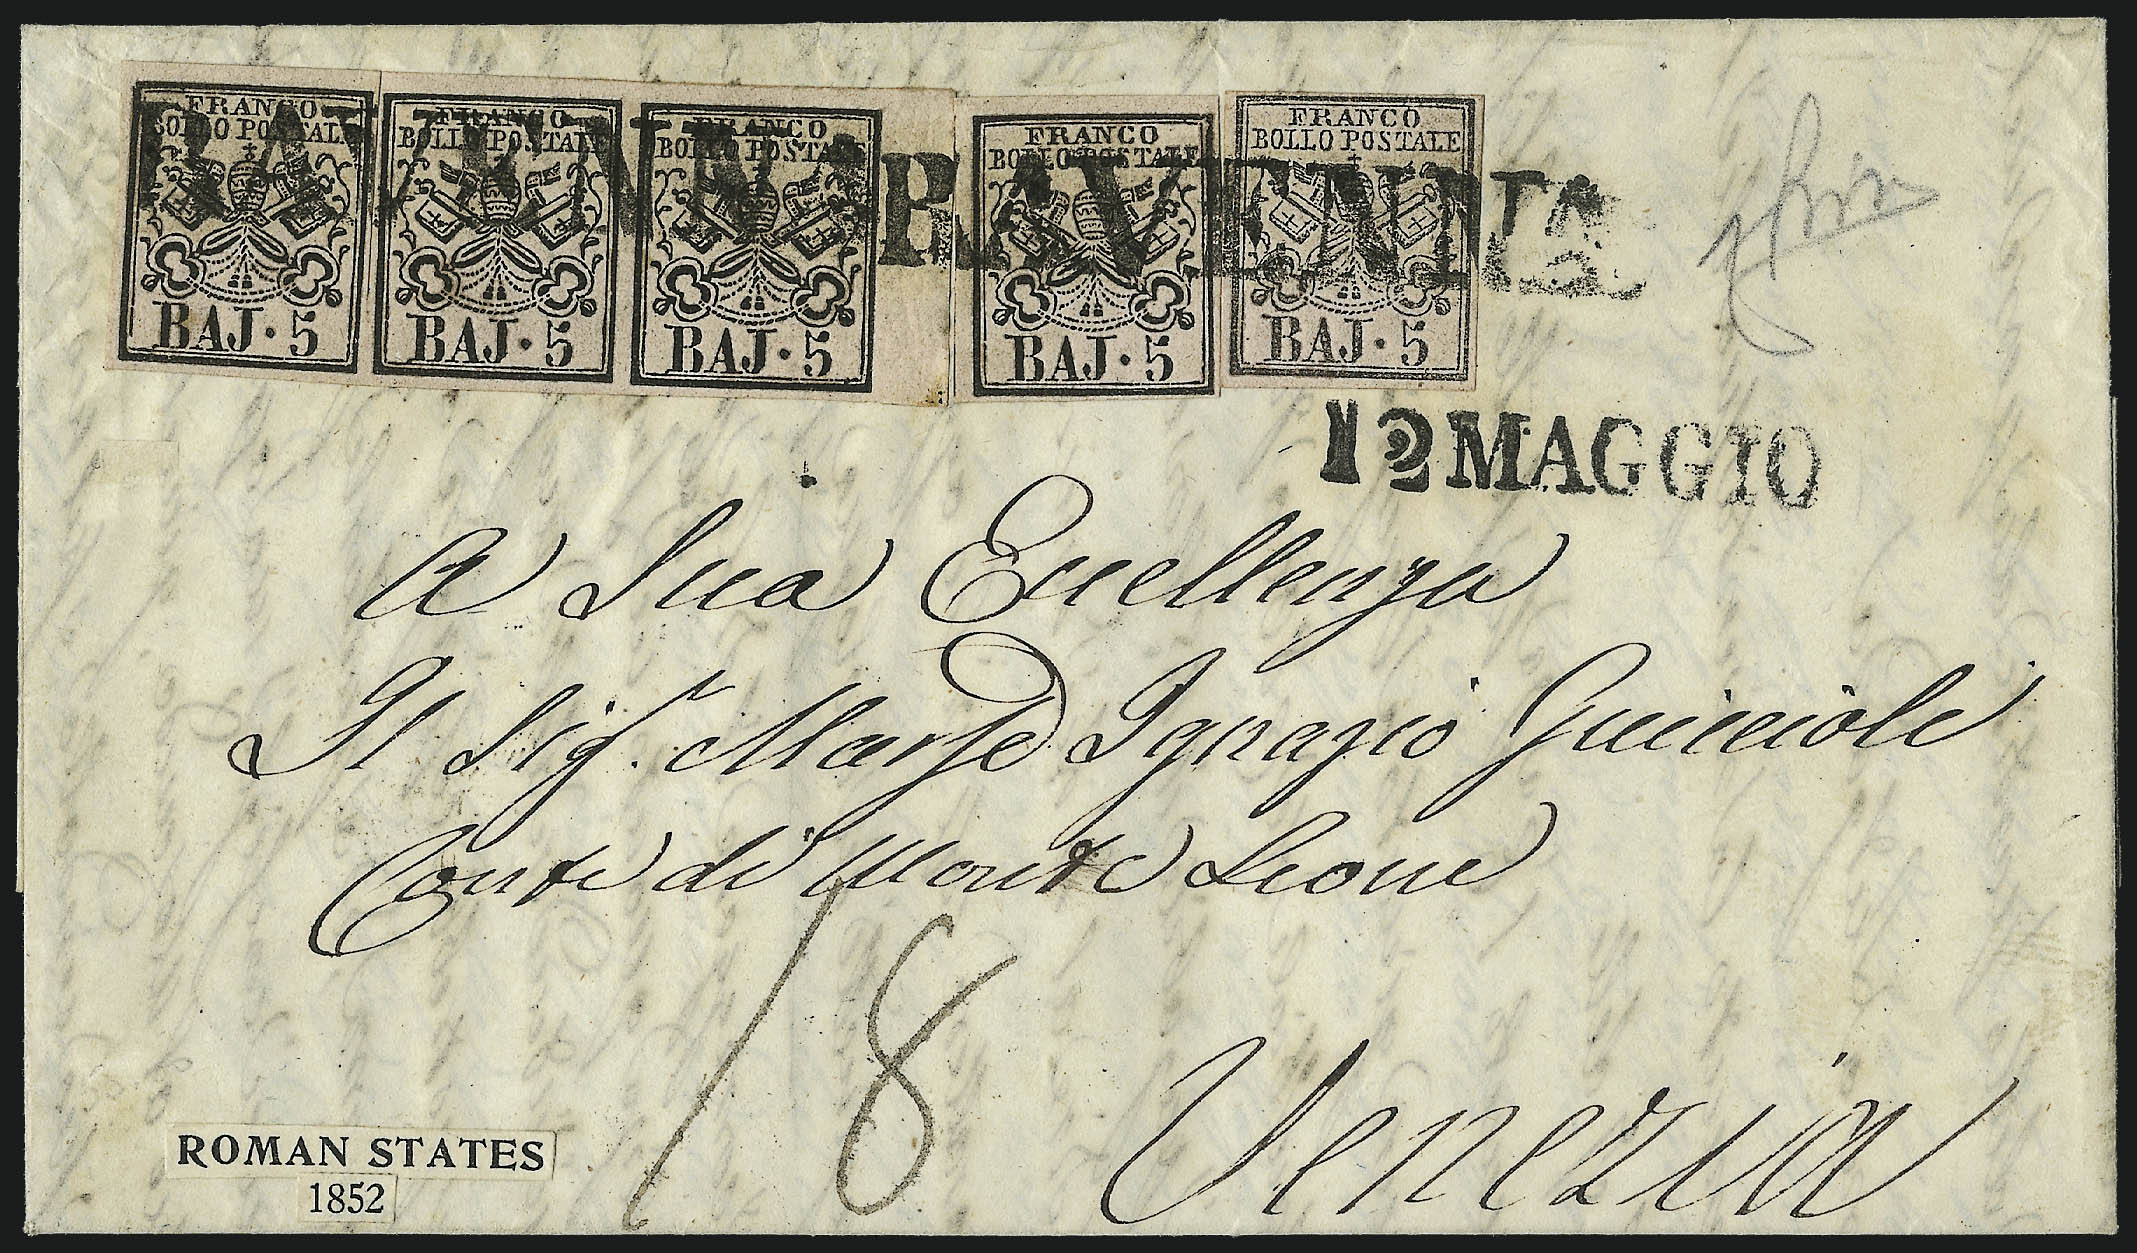 FRANCO
BOLLO POSTALE
BAJ · 5
FRANCO
BOLLO POSTALE
BAJ · 5
FRANCO
BOLLO POSTALE
BAJ · 5
FRANCO
BOLLO POSTALE
BAJ · 5
FRANCO
BOLLO POSTALE
BAJ · 5
RAVENNA
RAVENNA
12 MAGGIO
A Sua Eccellenza
Il Sigr. Marse Ignazio Guiccioli
Conte di Monte Leone
18
Venezia
ROMAN STATES
1852